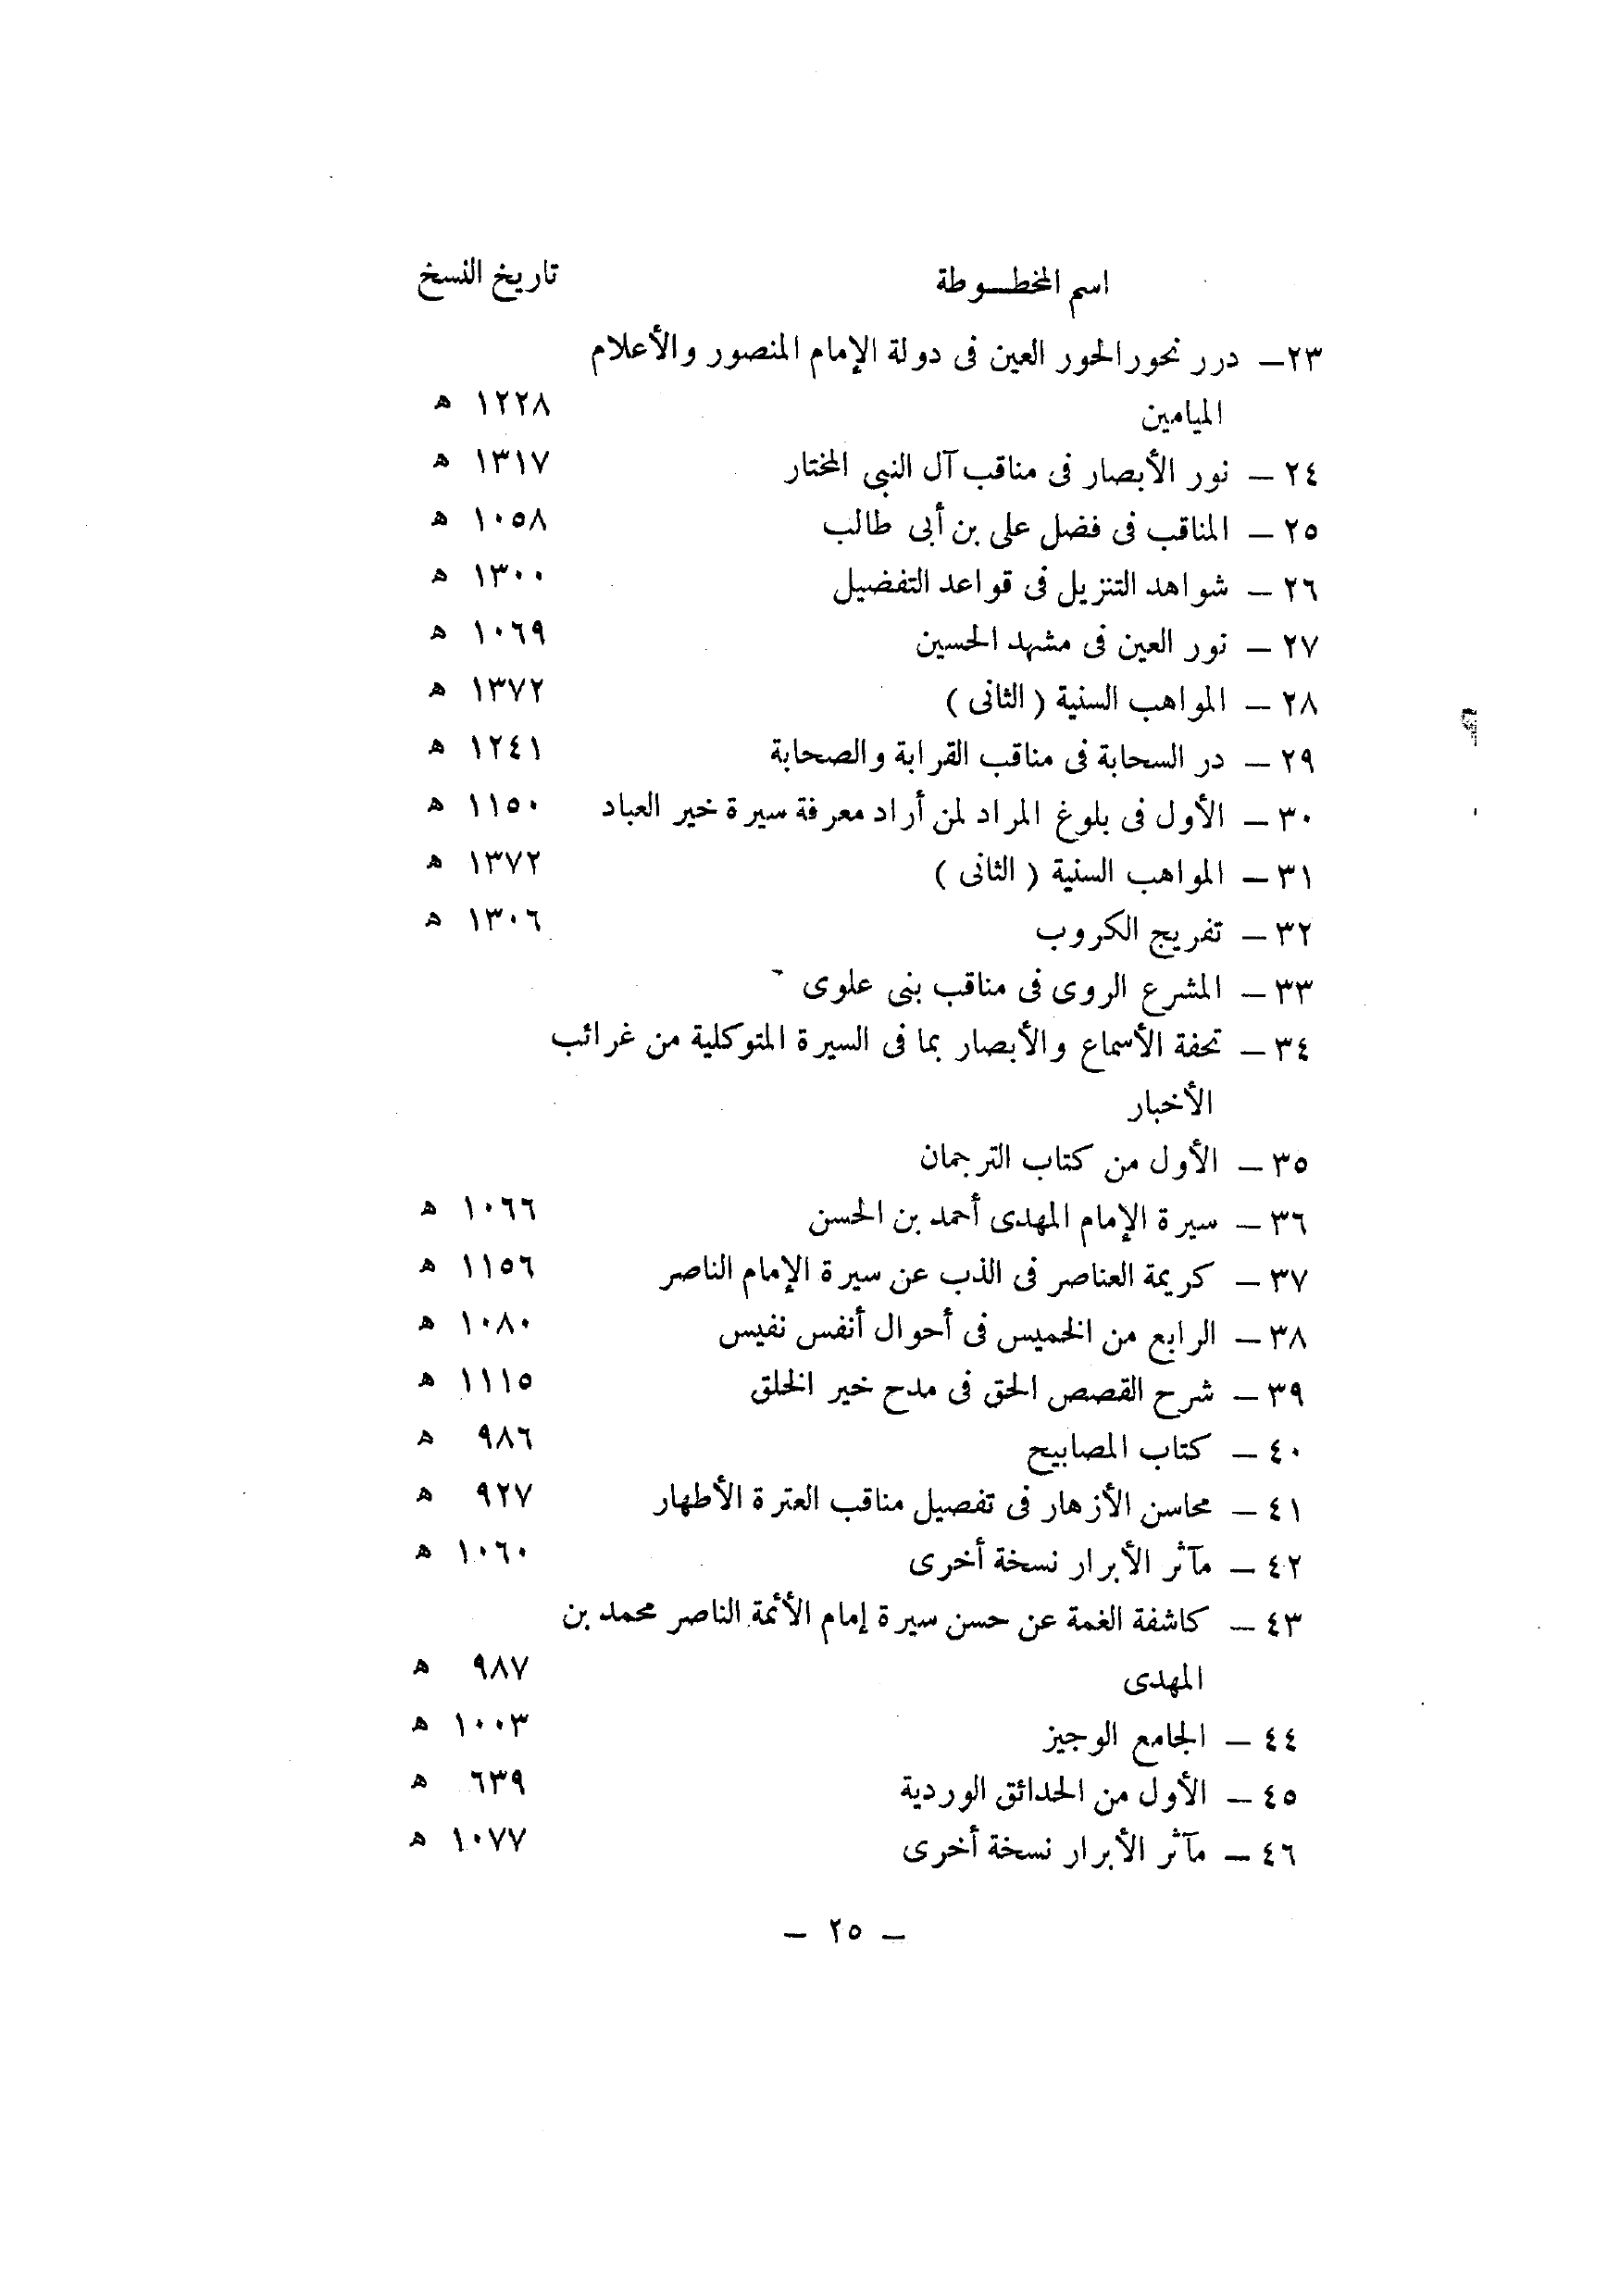 اسم المخطـوطة تاريخ النسخ
٢٣ـ درر نحور الحور العين فى دولة الإمام المنصور والأعلام
الميامين ١٢٢٨ ه
٢٤ ـ نور الأبصار فى مناقب آل النبى المختار ١٣١٧ ه
٢٥ ـ المناقب فى فضل على بن أبى طالب ١٠٥٨ ه
٢٦ ـ شواهد التنزيل فى قواعد التفضيل ١٣٠٠ ه
٢٧ ـ نور العين فى مشهد الحسين ١٠٦٩ ه
٢٨ ـ المواهب السنية ( الثانى ) ١٣٧٢ ه
٢٩ ـ در السحابة فى مناقب القرابة والصحابة ١٢٤١ ه
٣٠ ـ الأول فى بلوغ المراد لمن أراد معرفة سيرة خير العباد ١١٥٠ ه
٣١ ـ المواهب السنية ( الثانى ) ١٣٧٢ ه
٣٢ ـ تفريج الكروب ١٣٠٦ ه
٣٣ ـ المشرع الروى فى مناقب بنى علوى
٣٤ ـ تحفة الأسماع والأبصار بما فى السيرة المتوكلية من غرائب
الأخبار
٣٥ ـ الأول من كتاب الترجمان
٣٦ ـ سيرة الإمام المهدى أحمد بن الحسن ١٠٦٦ ه
٣٧ ـ كريمة العناصر فى الذب عن سيرة الإمام الناصر ١١٥٦ ه
٣٨ ـ الرابع من الخميس فى أحوال أنفس نفيس ١٠٨٠ ه
٣٩ ـ شرح القصص الحق فى مدح خير الخلق ١١١٥ ه
٤٠ ـ كتاب المصابيح ٩٨٦ ه
٤١ ـ محاسن الأزهار فى تفصيل مناقب العترة الأطهار ٩٢٧ ه
٤٢ ـ مآثر الأبرار نسخة أخرى ١٠٦٠ ه
٤٣ ـ كاشفة الغمة عن حسن سيرة إمام الأئمة الناصر محمد بن
المهدى ٩٨٧ ه
٤٤ ـ الجامع الوجيز ١٠٠٣ ه
٤٥ ـ الأول من الحدائق الوردية ٦٣٩ ه
٤٦ ـ مآثر الأبرار نسخة أخرى ١٠٧٧ ه
ـ ٢٥ ـ